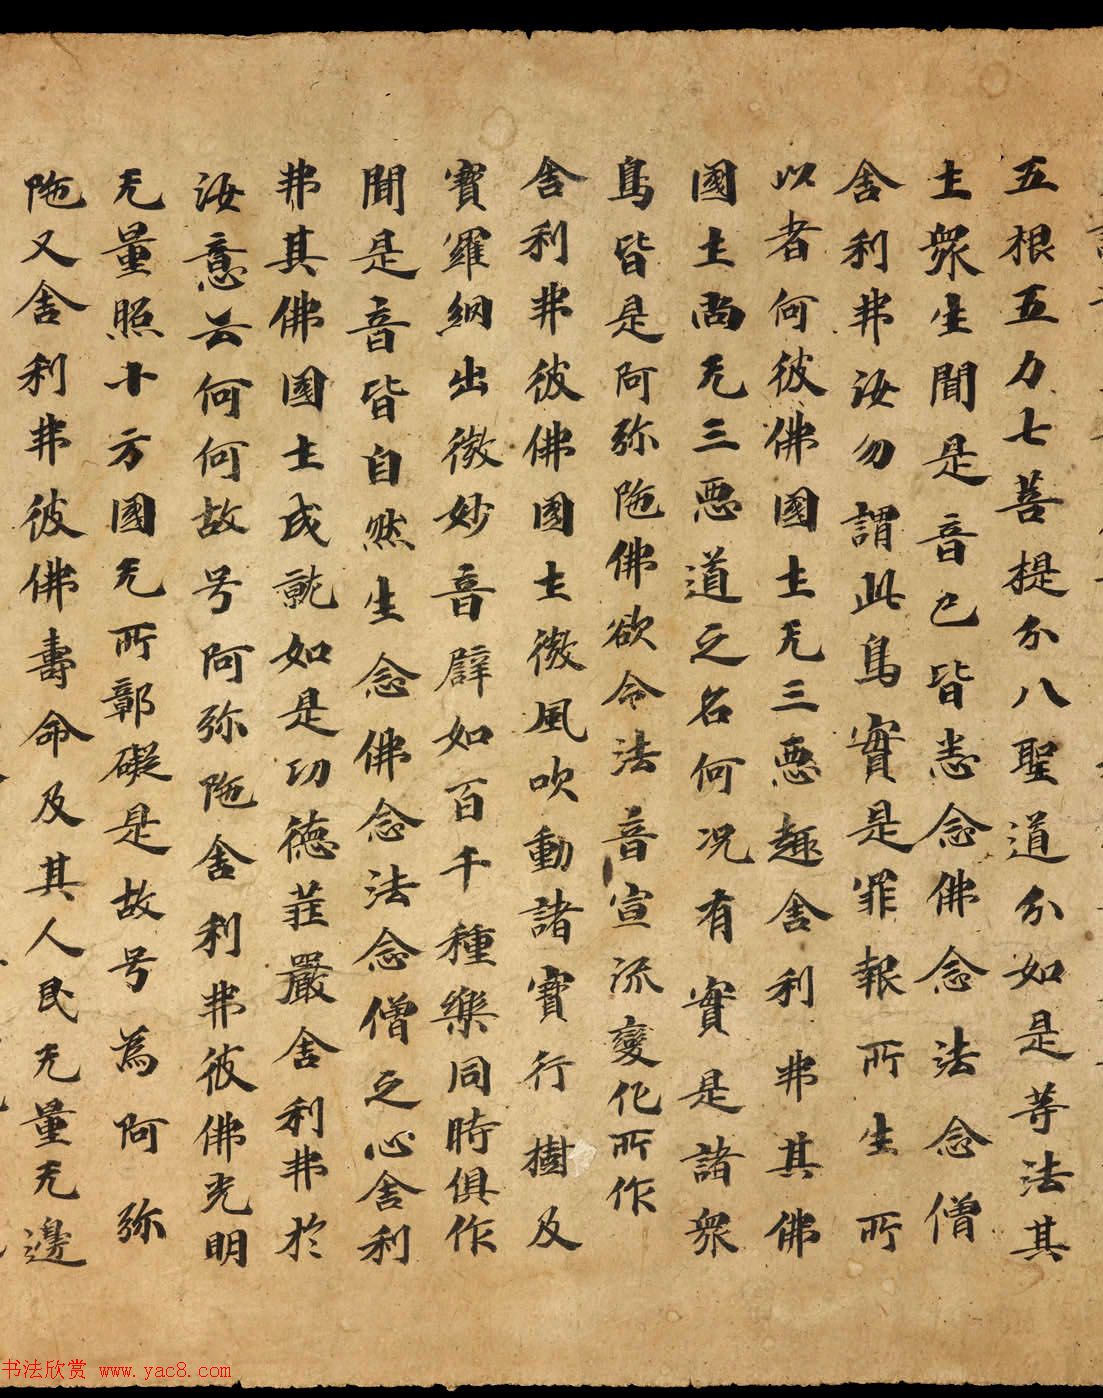 五根五力七菩提分八聖道分如是等法其
土衆生聞是音已皆悉念佛念法念僧
舍利弗汝勿謂此鳥實是罪報所生所
以者何彼佛國土无三惡趣舍利弗其佛
國土尚无三惡道之名何況有實是諸衆
鳥皆是阿弥陁佛欲令法音宣流變化所作
舍利弗彼佛國土微風吹動諸寶行樹及
寶羅網出微妙音辟如百千種樂同時俱作
聞是音皆自然生念佛念法念僧之心舍利
弗其佛國土成就如是功德莊嚴舍利弗於
汝意云何何故号阿弥陁舍利弗彼佛光明
无量照十方國无所鄣礙是故号為阿弥
陁又舍利弗彼佛壽命及其人民无量无邊
书法欣赏 www.yac8.com